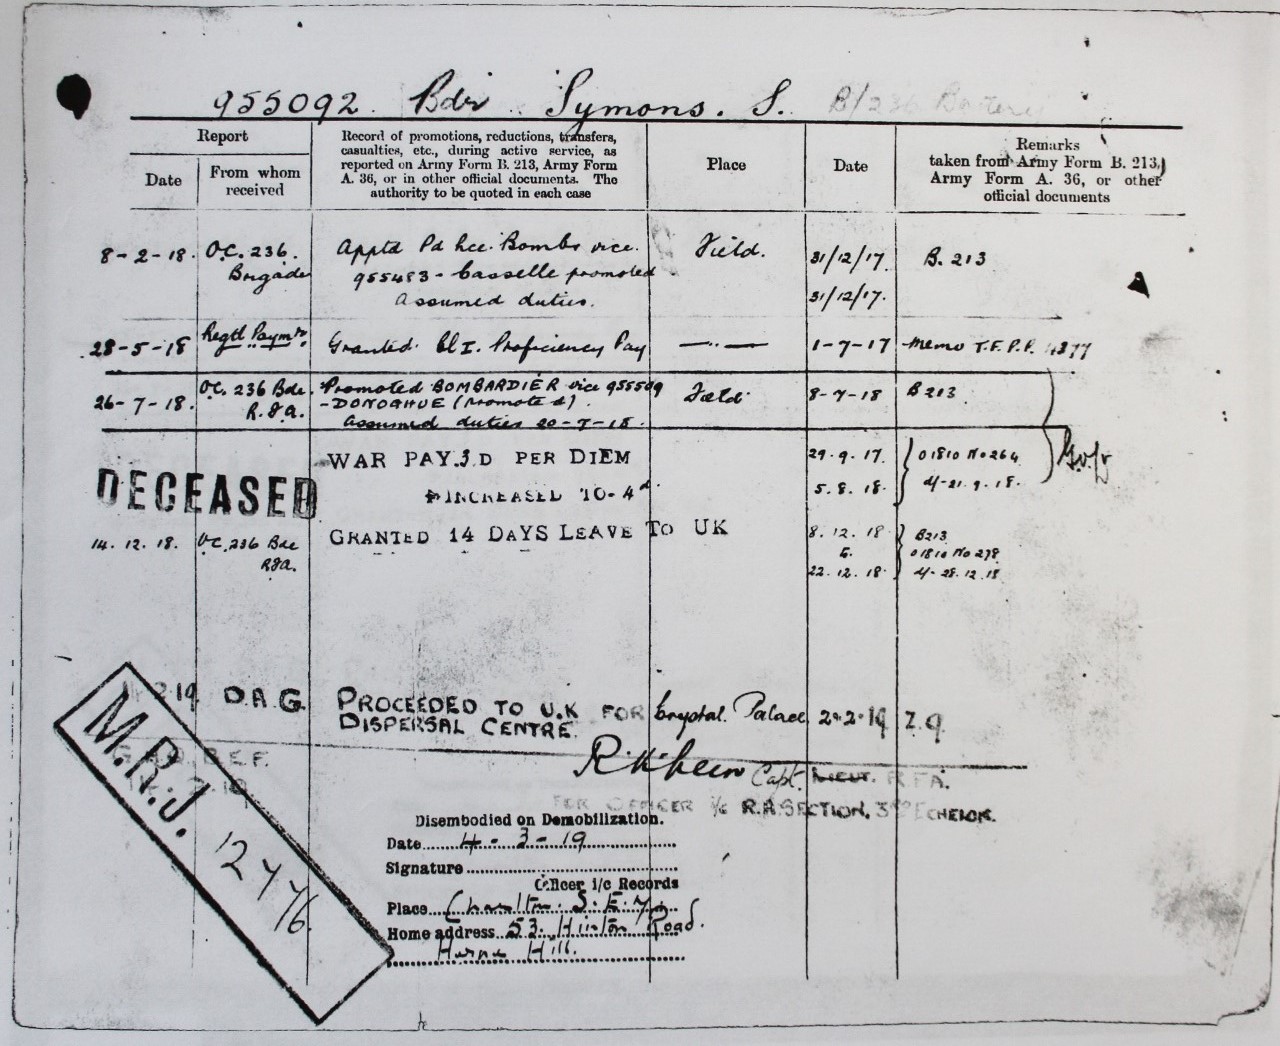 955092. Bdr. Symons. S. B/236 Battery
Report
Date
From whom received
Record of promotions, reductions, transfers, casualties, etc., during active service, as reported on Army Form B. 213, Army Form A. 36, or in other official documents. The authority to be quoted in each case
Place
Date
Remarks
taken from Army Form B. 213, Army Form A. 36, or other official documents
8-2-18. O.C. 236. Brigade
Appтd Pd Bombr vice.
955483 - Casselle promoted
Assumed duties.
Field.
31/12/17.
31/12/17.
B. 213
28-5-18 Regtl Paymr
Granted Cl I. Proficiency Pay
—"—
1-7-17
Memo T.F.P.P. 4377
26-7-18. O.C. 236 Bde. R.F.A.
Promoted BOMBARDIER vice 955509
-DONOGHUE (promoted)
Assumed duties 20-7-18.
Field
8-7-18
B213
WAR PAY.3.D PER DIEM
29.9.17.
01810 No 264
INCREASED TO- 4d.
5.8.18.
21.9.18.
DECEASED
14.12.18. O.C. 236 Bde RFA.
GRANTED 14 DAYS LEAVE TO UK
8.12.18
22.12.18
B213
01810 No 278
28.12.18
2.19 D.A.G.
PROCEEDED TO U.K FOR
DISPERSAL CENTRE.
Crystal Palace
2.2.19
Z.9
G.H.Q., B.E.F.
Capt. LIEUT. RFA.
FOR OFFICER I/C R.A. SECTION, 3RD ECHELON.
M.R.J.
Disembodied on Demobilization.
Date 4-3-19
Signature
Officer i/c Records
Place Charlton. S.E.7.
Home address 53. Hinton Road.
Herne Hill.